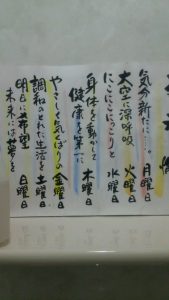 気分新たに…。 月曜日
大空に深呼吸 火曜日
にこにこにっこりと 水曜日
身体を動かして
健康を第一に 木曜日
やさしく気くばりの 金曜日
調和のとれた生活を 土曜日
明日に希望
未来には夢を 日曜日